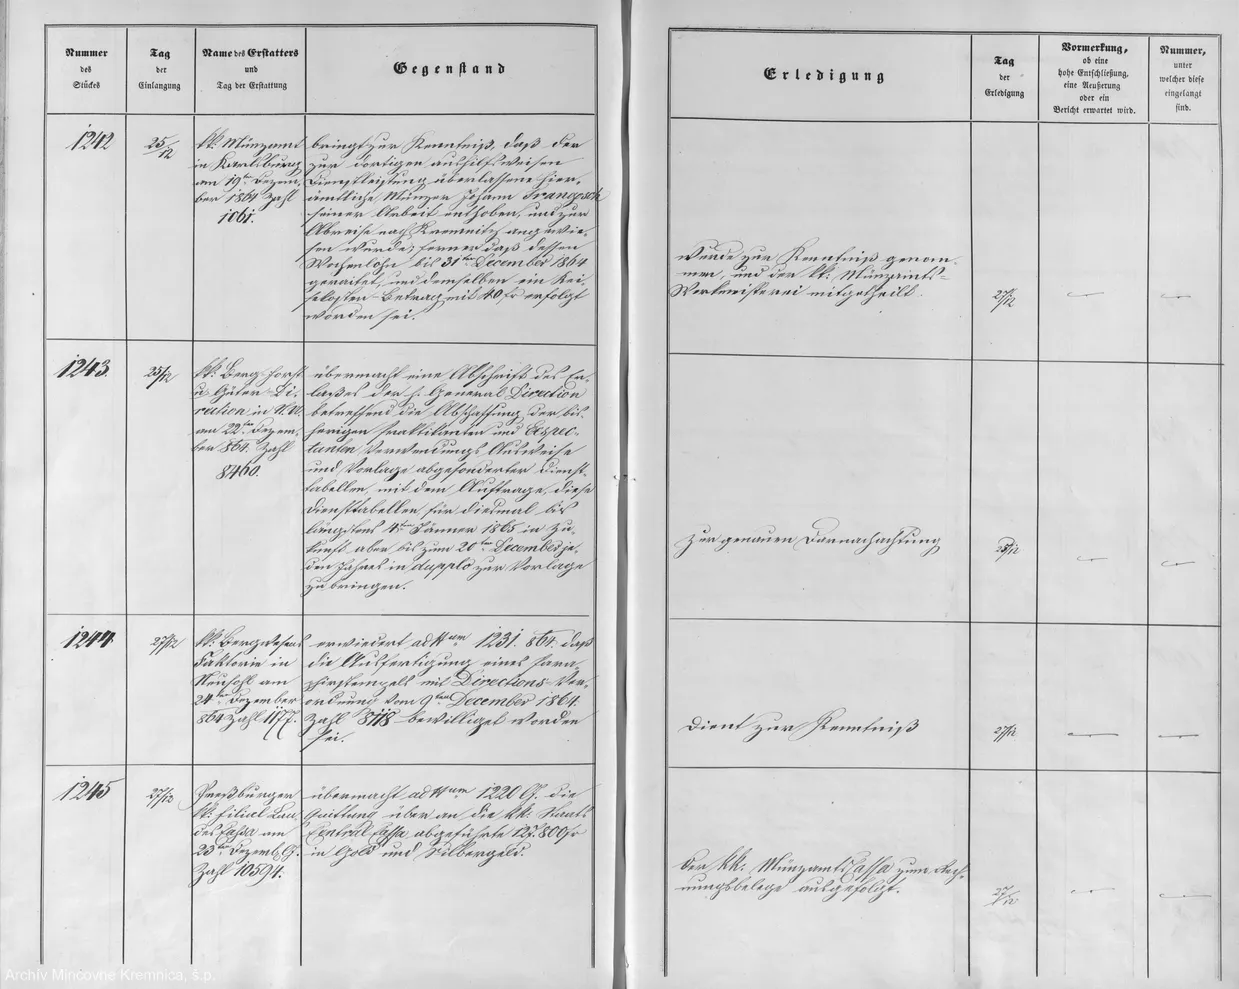 Nummer
des
Stückes
Tag
der
Einlangung
Name des Erstatters
und
Tag der Erstattung
Gegenstand
1242
25/12
kk: Münzamt
in Karlsburg
am 19ten Dezem-
ber 1864 Zahl
1061.
bringt zur Kenntniß, daß der
zur dortigen aushilfsweisen
Dienstleistung überlassene hier-
ämtliche Münzer Johann
seiner Arbeit enthoben, und zur
Abreise nach Kremnitz angewie-
sen wurde; ferner daß dessen
Wochenlohn bis 31ten December 1864
geraitet, und demselben ein Rei-
sekosten-Betrag mit 40 fr erfolgt
worden sei.
1243.
25/12
kk: Berg- Forst
u Güter-Di-
rection in
am 22ten Dezem-
ber 864. Zahl
8460.
übermacht eine Abschrift des Er-
laßes der h. General Direction
betreffend die Abschaffung der bis-
herigen Praktikanten und Expec-
tanten Verwendungs Ausweise
und Vorlage abgesonderter Dienst-
tabellen, mit dem Auftrage, diese
Diensttabellen, für diesmal bis
längstens 4ten Jänner 1865 in Zu-
kunft aber bis zum 20ten December je-
den Jahres in dupplo zur Vorlage
zu bringen.
1244.
27/12
kk: Bergwesens
Faktorie in
Neusohl am
24ten Dezember
864 Zahl 1177.
erwiedert ad Num 1231. 864. daß
die Ausfertigung eines
mit Directions-Ver-
ordnung vom 9ten December 1864.
Zahl 8118 bewilliget worden
sei.
1245
27/12
Preßburger
kk: Filial Lan-
des Cassa am
23ten Dezemb.
Zahl 10594.
übermacht ad Num 1220 die
Quittung über an die kk: Staats
Central Cassa abgeführte 127.800 fr
in Gold und Silbergeld.
Erledigung
Tag
der
Erledigung
Vormerkung,
ob eine
hohe Entschließung,
eine Aeußerung
oder ein
Bericht erwartet wird.
Nummer,
unter
welcher diese
eingelangt
sind.
wurde zur Kenntniß genom-
men, und der kk: Münzamts-
Werkmeisterei mitgetheilt.
27/12
zur genauen Darnachachtung
28/12
Dient zur Kenntniß
27/12
Der kk: Münzamts Cassa zum Rech-
nungsbelege ausgefolgt.
27/12
Archív Mincovne Kremnica, š.p.